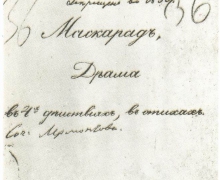 36
Маскарадъ,
Драма
въ 4х дѣйствіяхъ, въ стихахъ.
Соч. Лермонтова.